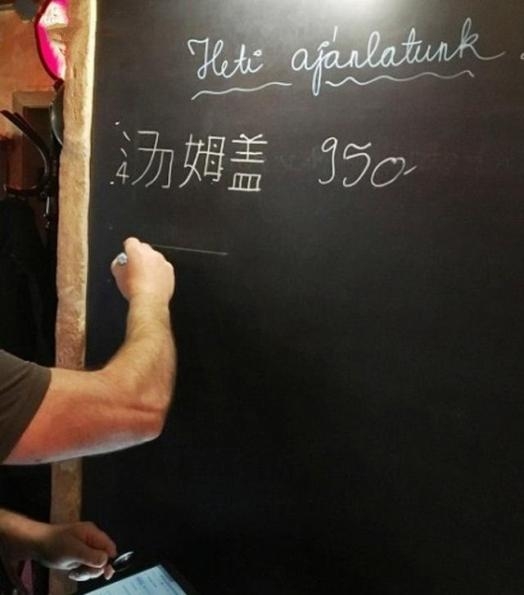 Heti ajánlatunk
汤姆盖 950,-